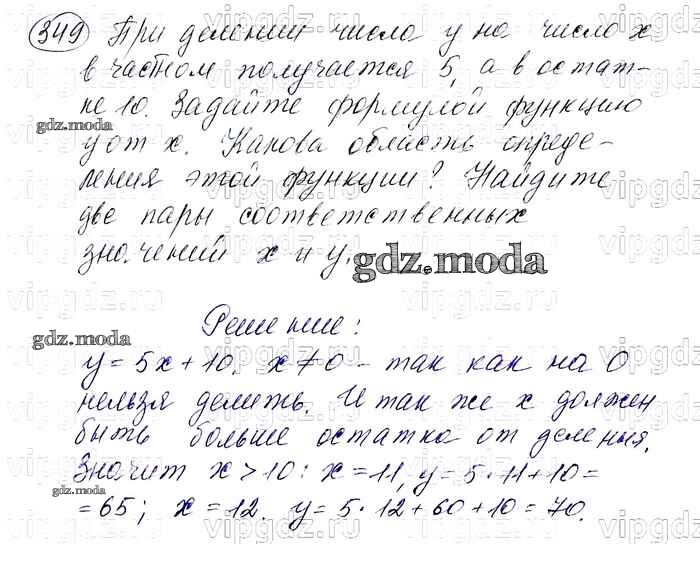 349 При делении числа y на число x
в частном получается 5, а в остат-
ке 10. Задайте формулой функцию
gdz.moda
y от x. Какова область опреде-
ления этой функции? Найдите
две пары соответственных
значений x и y.
gdz.moda
Решение:
gdz.moda
y = 5x + 10, x ≠ 0 - так как на 0
нельзя делить. И так же x должен
быть больше остатка от деленья.
Значит x > 10: x = 11, y = 5·11 + 10 =
gdz.moda
= 65; x = 12. y = 5·12 + 60 + 10 = 70.